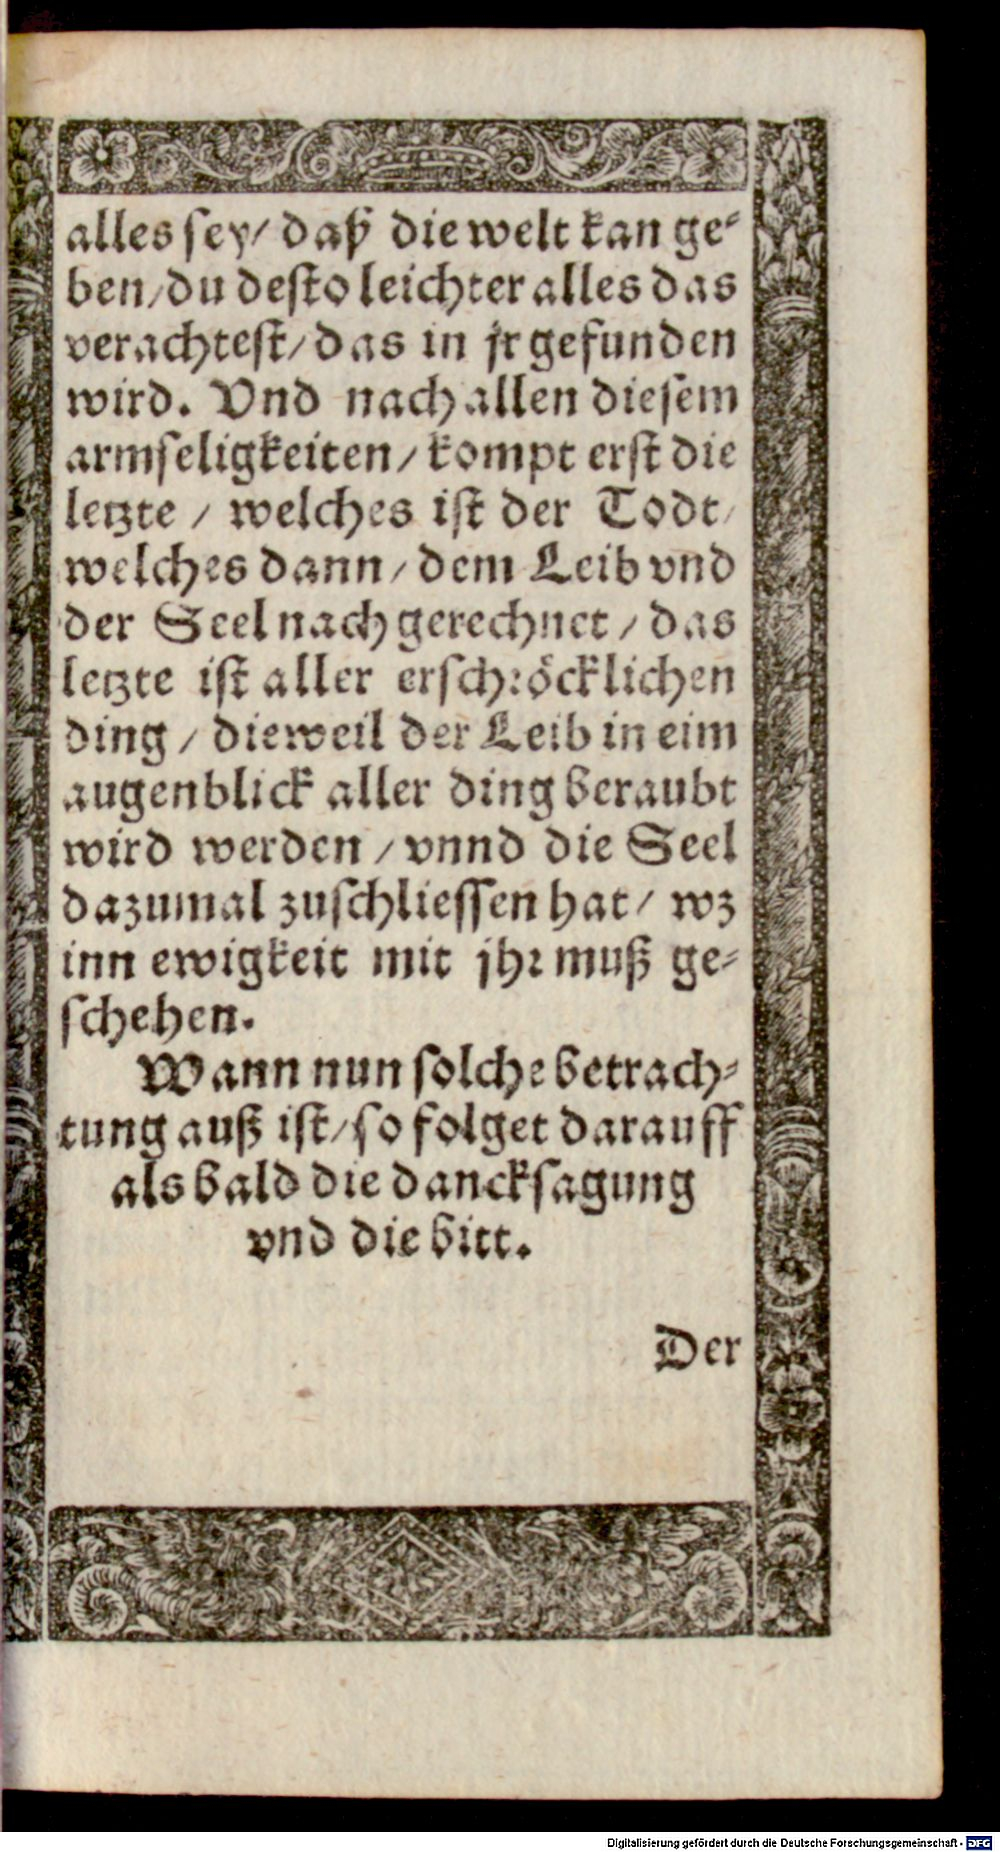 alles sey/ daß die welt kan ge⸗
ben/du desto leichter alles das
verachtest/das in jr gefunden
wird. Vnd nach allen diesem
armseligkeiten/kompt erst die
letzte / welches ist der Todt/
welches dann/dem Leib vnd
der Seel nach gerechnet/das
letzte ist aller erschröcklichen
ding / dieweil der Leib in eim
augenblick aller ding beraubt
wird werden / vnnd die Seel
dazumal zuschliessen hat/ wz
inn ewigkeit mit jhr muß ge⸗
schehen.
Wann nun solche betrach⸗
tung auß ist/so folget darauff
als bald die dancksagung
vnd die bitt.
Der
Digitalisierung gefördert durch die Deutsche Forschungsgemeinschaft - DFG